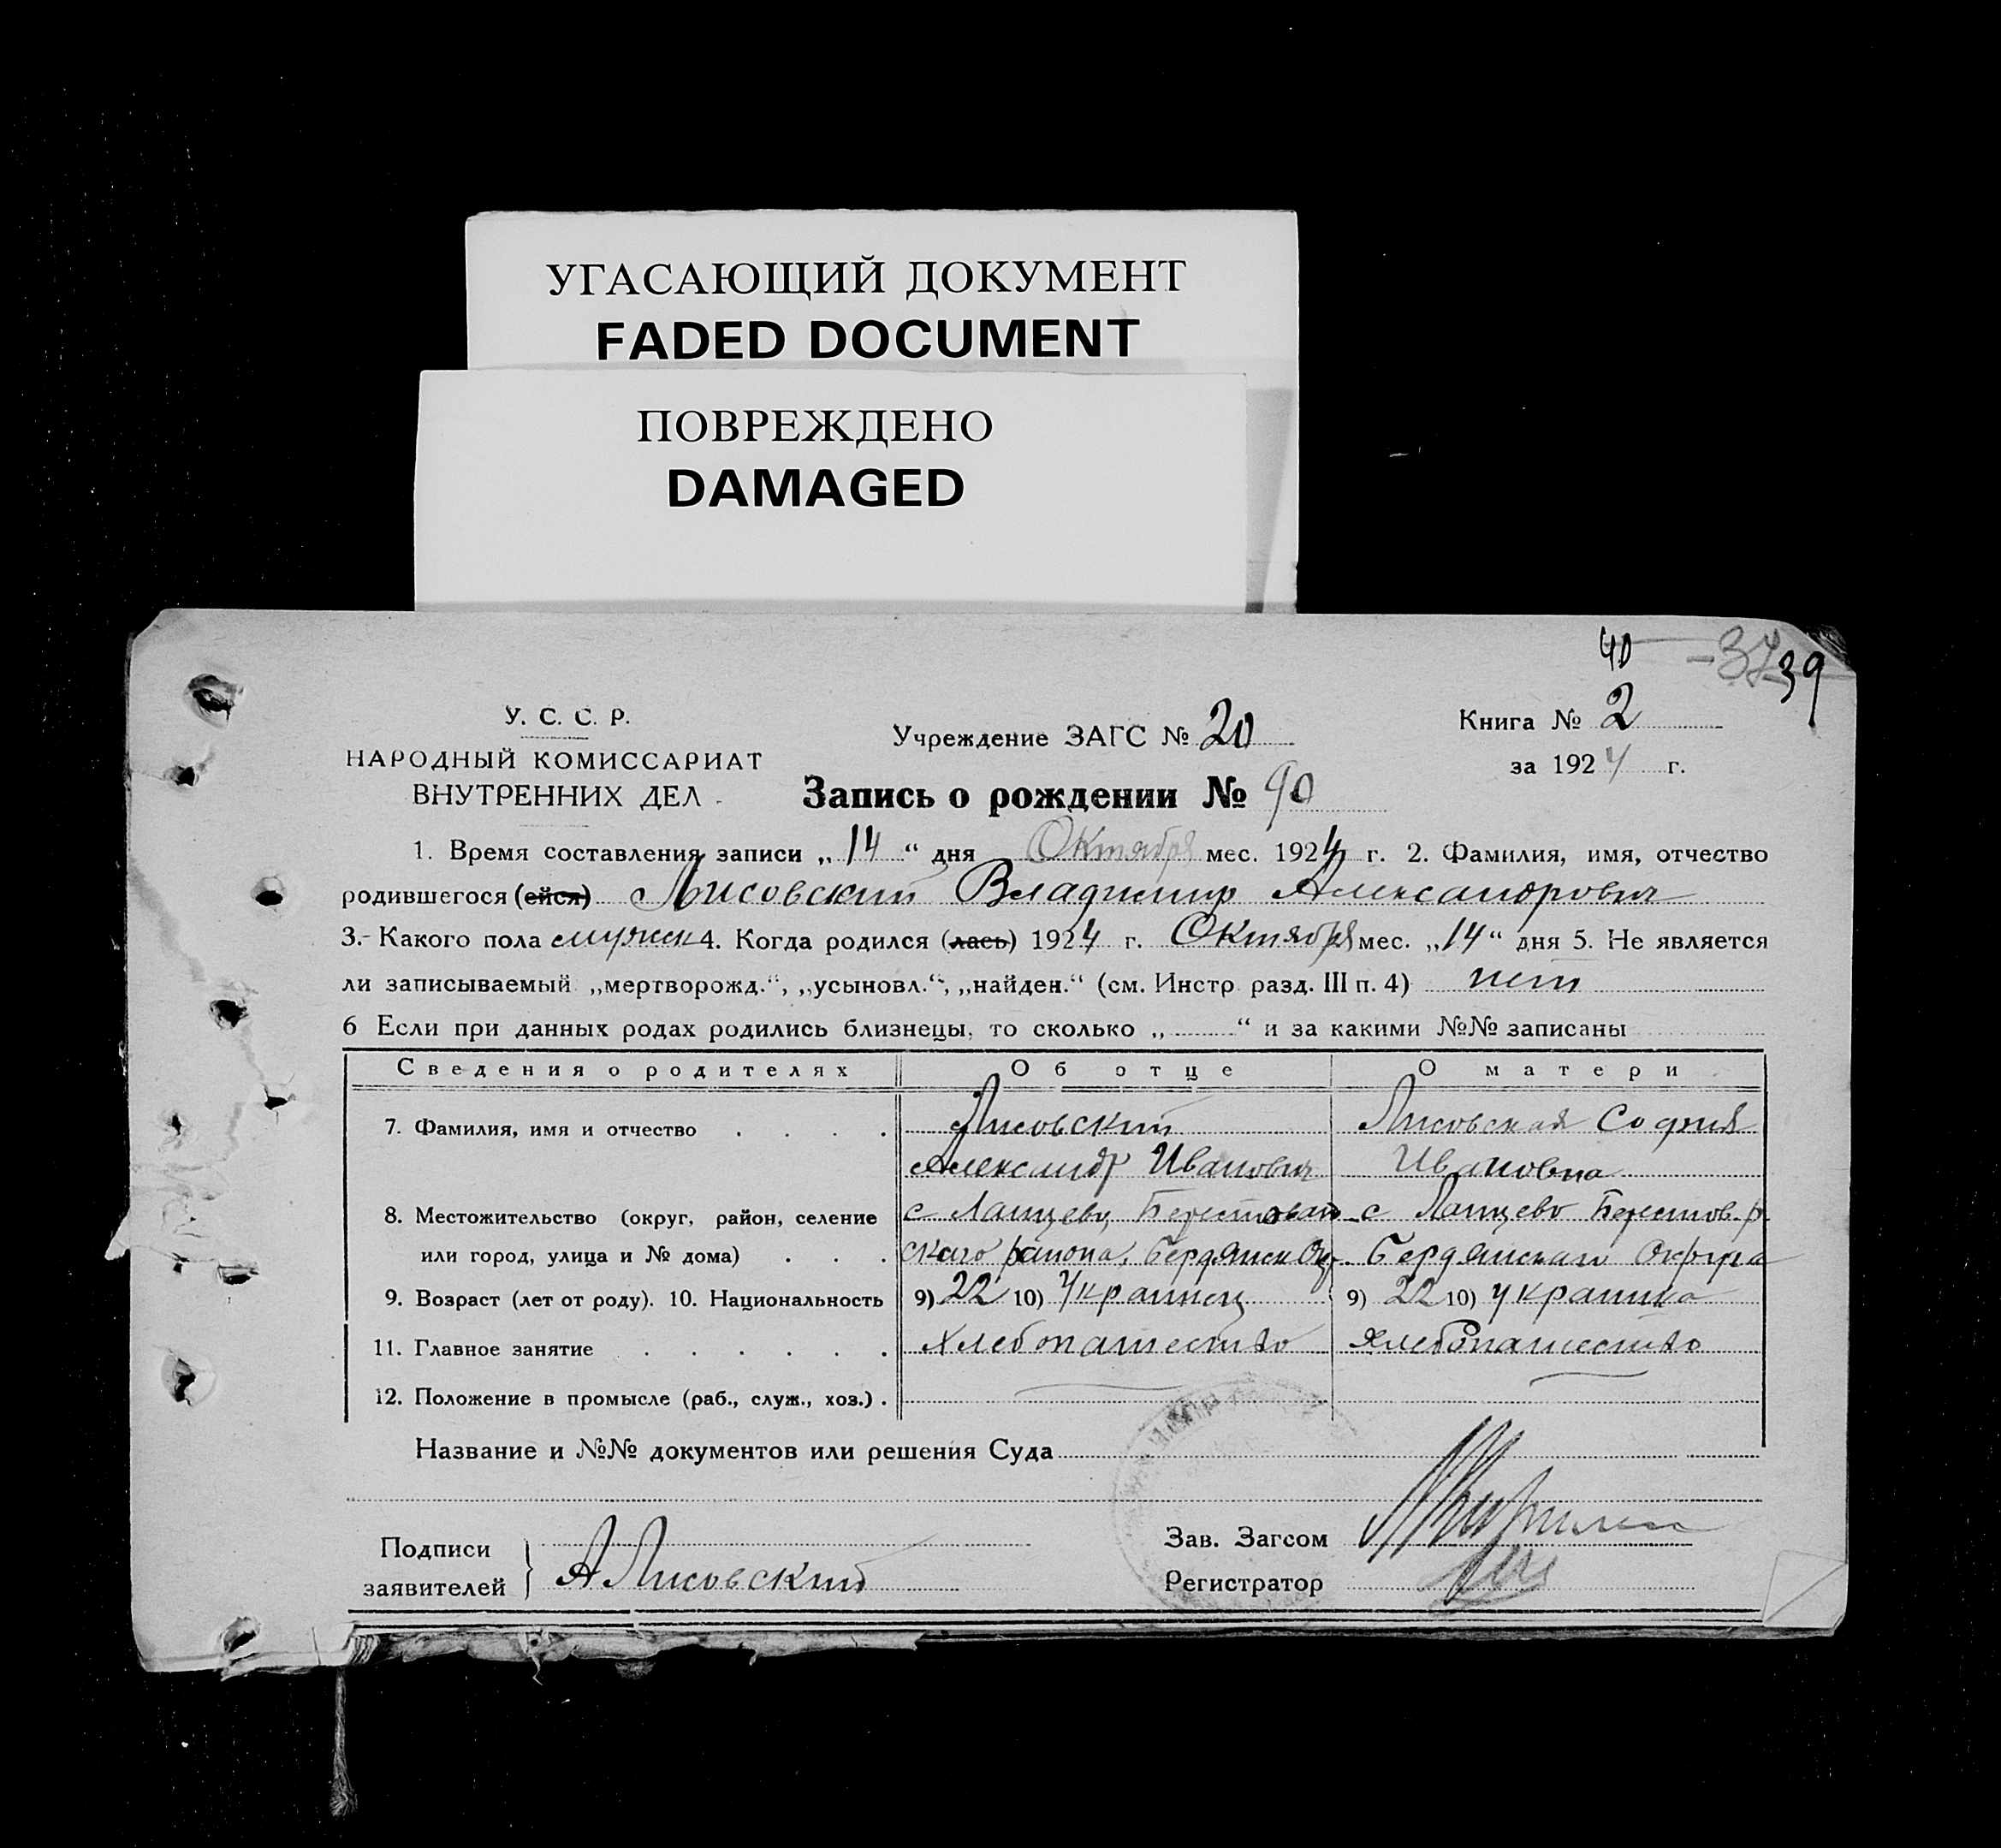 УГАСАЮЩИЙ ДОКУМЕНТ
FADED DOCUMENT
ПОВРЕЖДЕНО
DAMAGED
40 -37 39
У. С. С. Р.
НАРОДНЫЙ КОМИССАРИАТ
ВНУТРЕННИХ ДЕЛ
Учреждение ЗАГС № 20
Книга № 2
за 1924 г.
Запись о рождении № 90
1. Время составления записи „14“ дня Октября мес. 1924 г. 2. Фамилия, имя, отчество
родившегося (ейся) Лисовский Владимир Александрович
3. Какого пола мужск 4. Когда родился (лась) 1924 г. Октября мес. „14“ дня 5. Не является
ли записываемый „мертворожд.“, „усыновл.“, „найден.“ (см. Инстр разд. III п. 4) нет
6 Если при данных родах родились близнецы, то сколько „ “ и за какими №№ записаны
Сведения о родителях Об отце О матери
7. Фамилия, имя и отчество Лисовский Лисовская София
Александр Иванович Ивановна
8. Местожительство (округ, район, селение с Ланцево, Берестован с Ланцево Берестов. р.
или город, улица и № дома) скаго района, Бердянск Окр. Бердянскаго Округа
9. Возраст (лет от роду). 10. Национальность 9) 22 10) Украинец 9) 22 10) украинка
11. Главное занятие Хлебопашество Хлебопашество
12. Положение в промысле (раб., служ., хоз.)
Название и №№ документов или решения Суда
Подписи
заявителей А Лисовский
Зав. Загсом
Регистратор